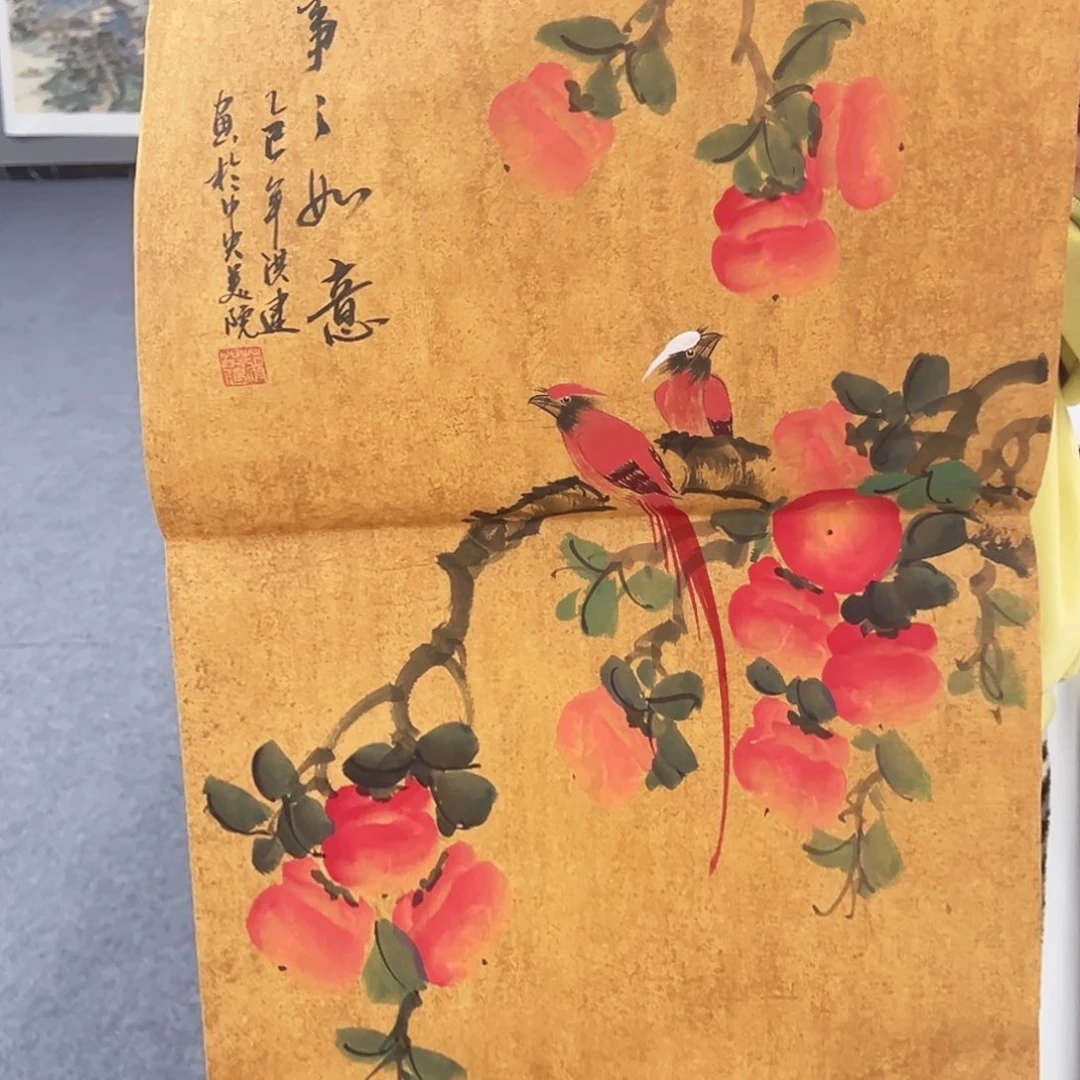 事〻如意
乙巳年洪建
画於中央美院